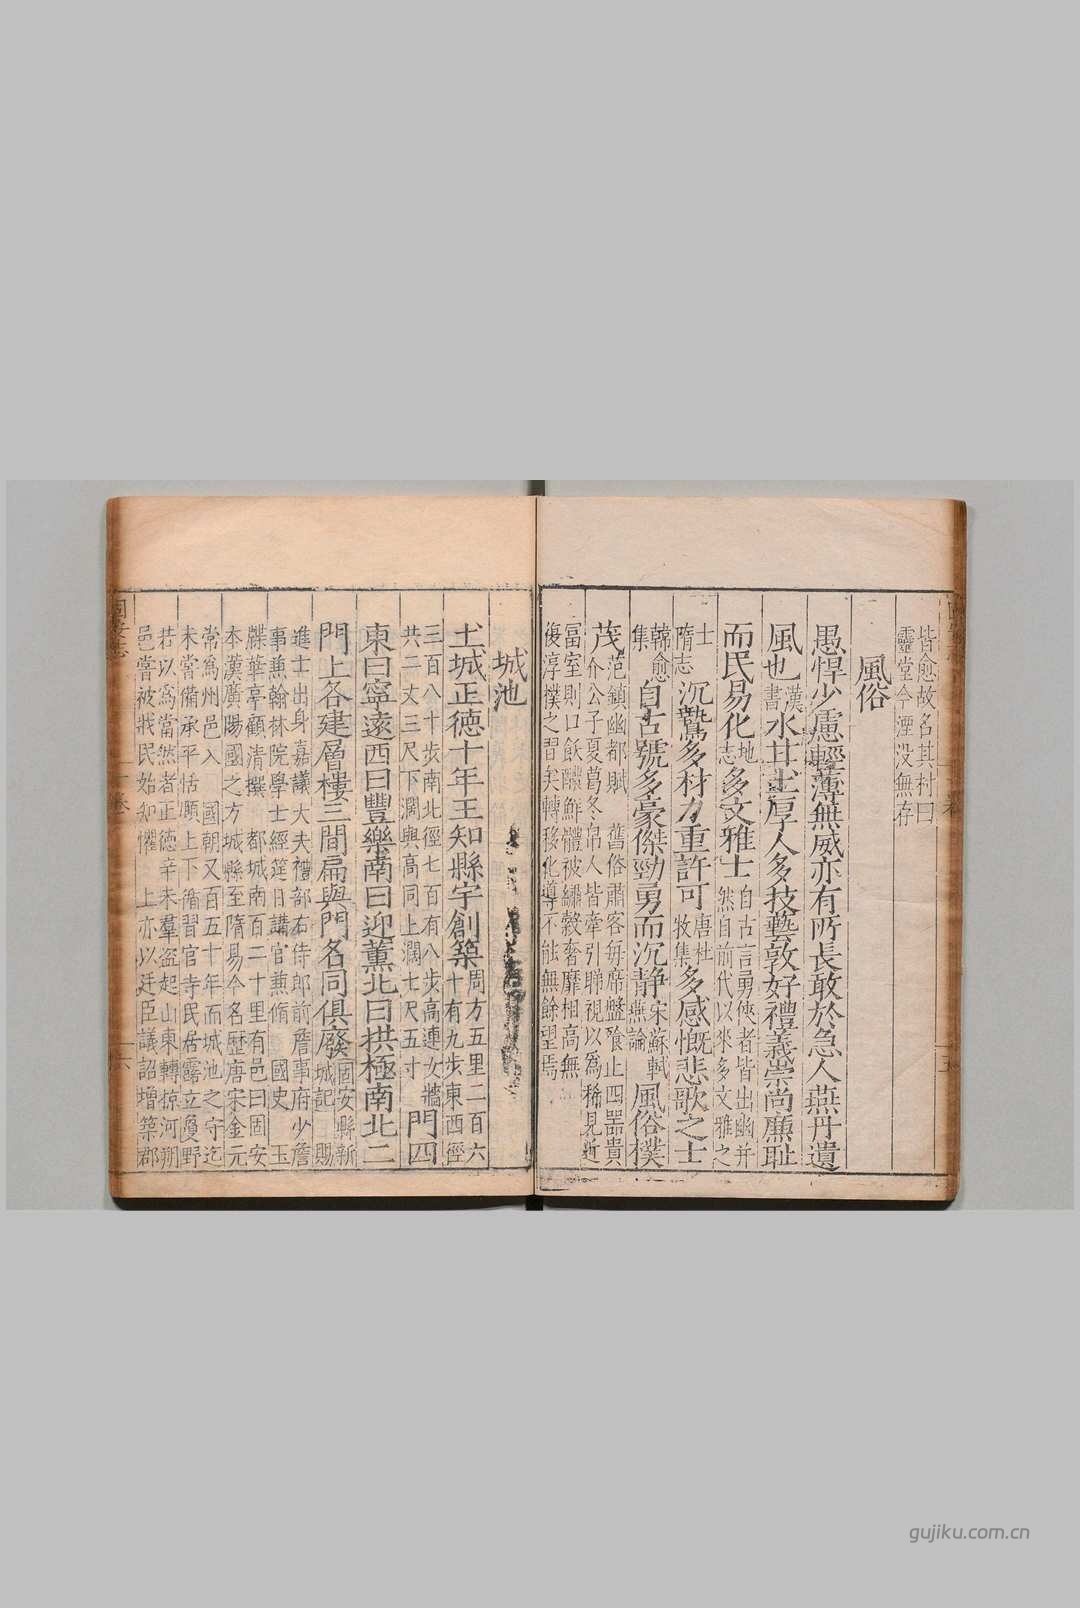 皆愈故名其村曰
靈堂今湮没無存
風俗
愚悍少慮輕薄無威亦有所長敢於急人燕丹遺
風也漢書水甘土厚人多技藝敦好禮義崇尚廉耻
而民易化地志多文雅士自古言勇俠者皆出幽并然自前代以來多文雅之
士隋志沉鷙多材力重許可唐杜牧集多感慨悲歌之士
韓愈集自古號多豪傑勁勇而沉静宋蘇軾燕論風俗樸
茂范鎮幽都賦 舊俗肅客每席盤飱止四噐貴介公子夏葛冬帛人皆牽引聯視以為稀見近
冨室則口飫醲鮮體被繡縠奢靡相高無
復淳樸之習矣轉移化導不能無餘望焉
城池
土城正德十年王知縣宇創築周方五里二百六十有九步東西徑
三百八十步南北徑七百有八步高連女牆
共二丈三尺下濶與高同上濶七尺五寸門四
東曰寧遠西曰豐樂南曰迎薰北曰拱極南北二
門上各建層樓三間扁與門名同俱廢固安縣新城記 賜
進士出身嘉議大夫禮部右侍郎前詹事府少詹
事兼翰林院學士經筵日講官兼脩 國史 玉
牒華亭顧清撰 都城南百二十里有邑曰固安
本漢廣陽國之方城縣至隋易今名歷唐宋金元
常為州邑入 國朝又百五十年而城池之守迄
未嘗備承平恬㥿上下循習官寺民居露立曼野
若以為當然者正德辛未羣盗起山東轉掠河朔
邑嘗被戕民始知懼 上亦以廷臣議詔增築郡
固安志
卷
六
五
gujiku.com.cn